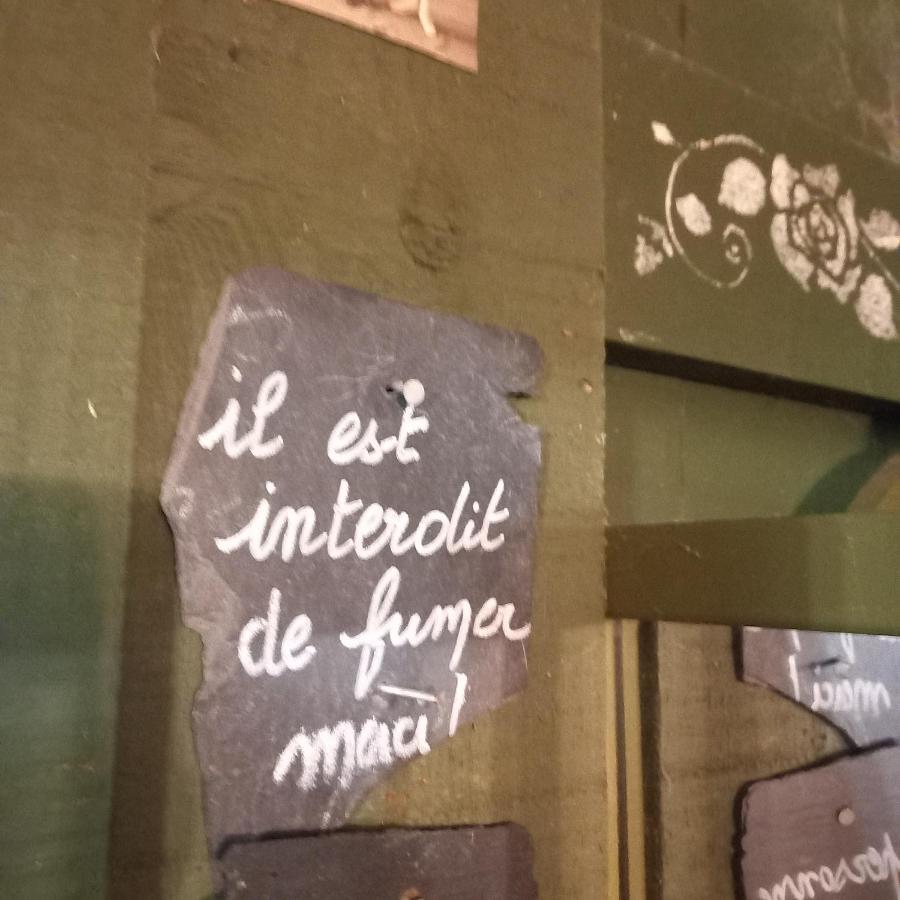 il est
interdit
de fumer
merci !